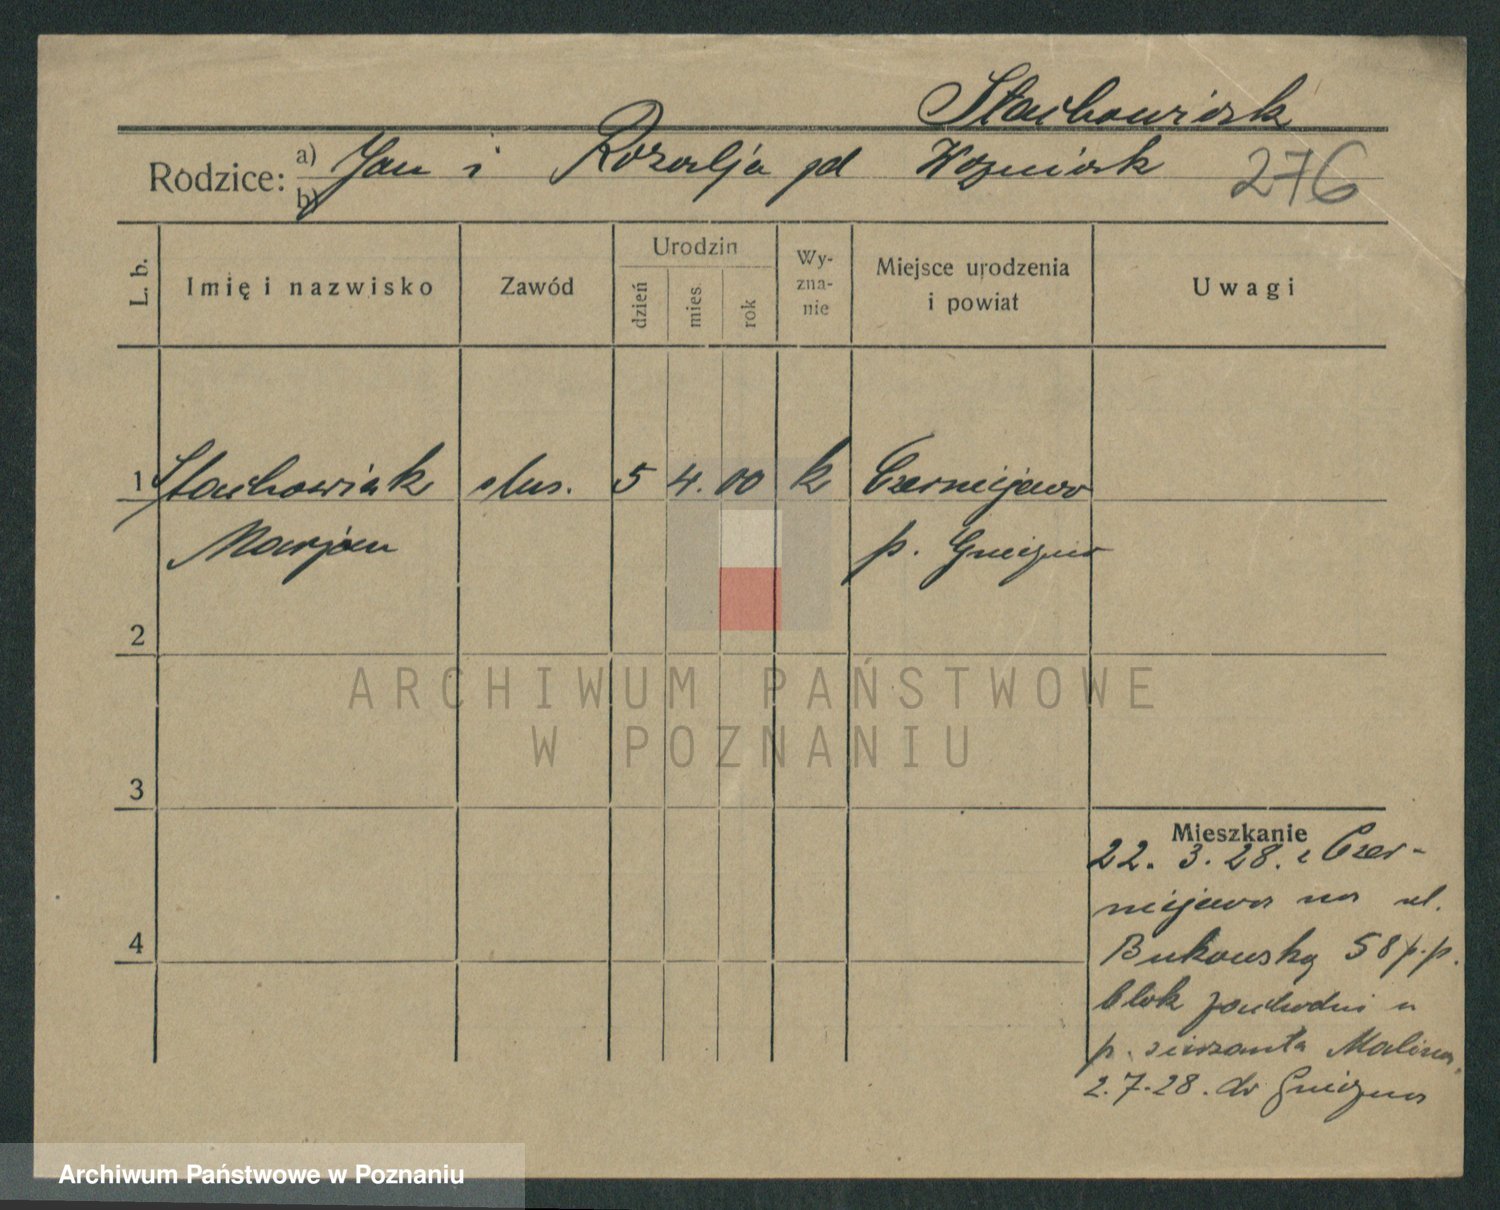 Stachowiak
Rodzice: a) Jan i Rozalja zd Wozniak
b)
276
L. b.
Imię i nazwisko
Zawód
Urodzin
dzień
mies.
rok
Wy-
zna-
nie
Miejsce urodzenia
i powiat
Uwagi
1 Stachowiak slus. 5 4. 00 k Czerniejewo
Marjan p. Gniezno
2
3
4
Mieszkanie
22. 3. 28. z Czer-
niejewa na ul.
Bukowską 58 p.p.
blok zachodni u
p. sierżanta Malina
2.7.28. do Gniezna
ARCHIWUM PAŃSTWOWE
W POZNANIU
Archiwum Państwowe w Poznaniu